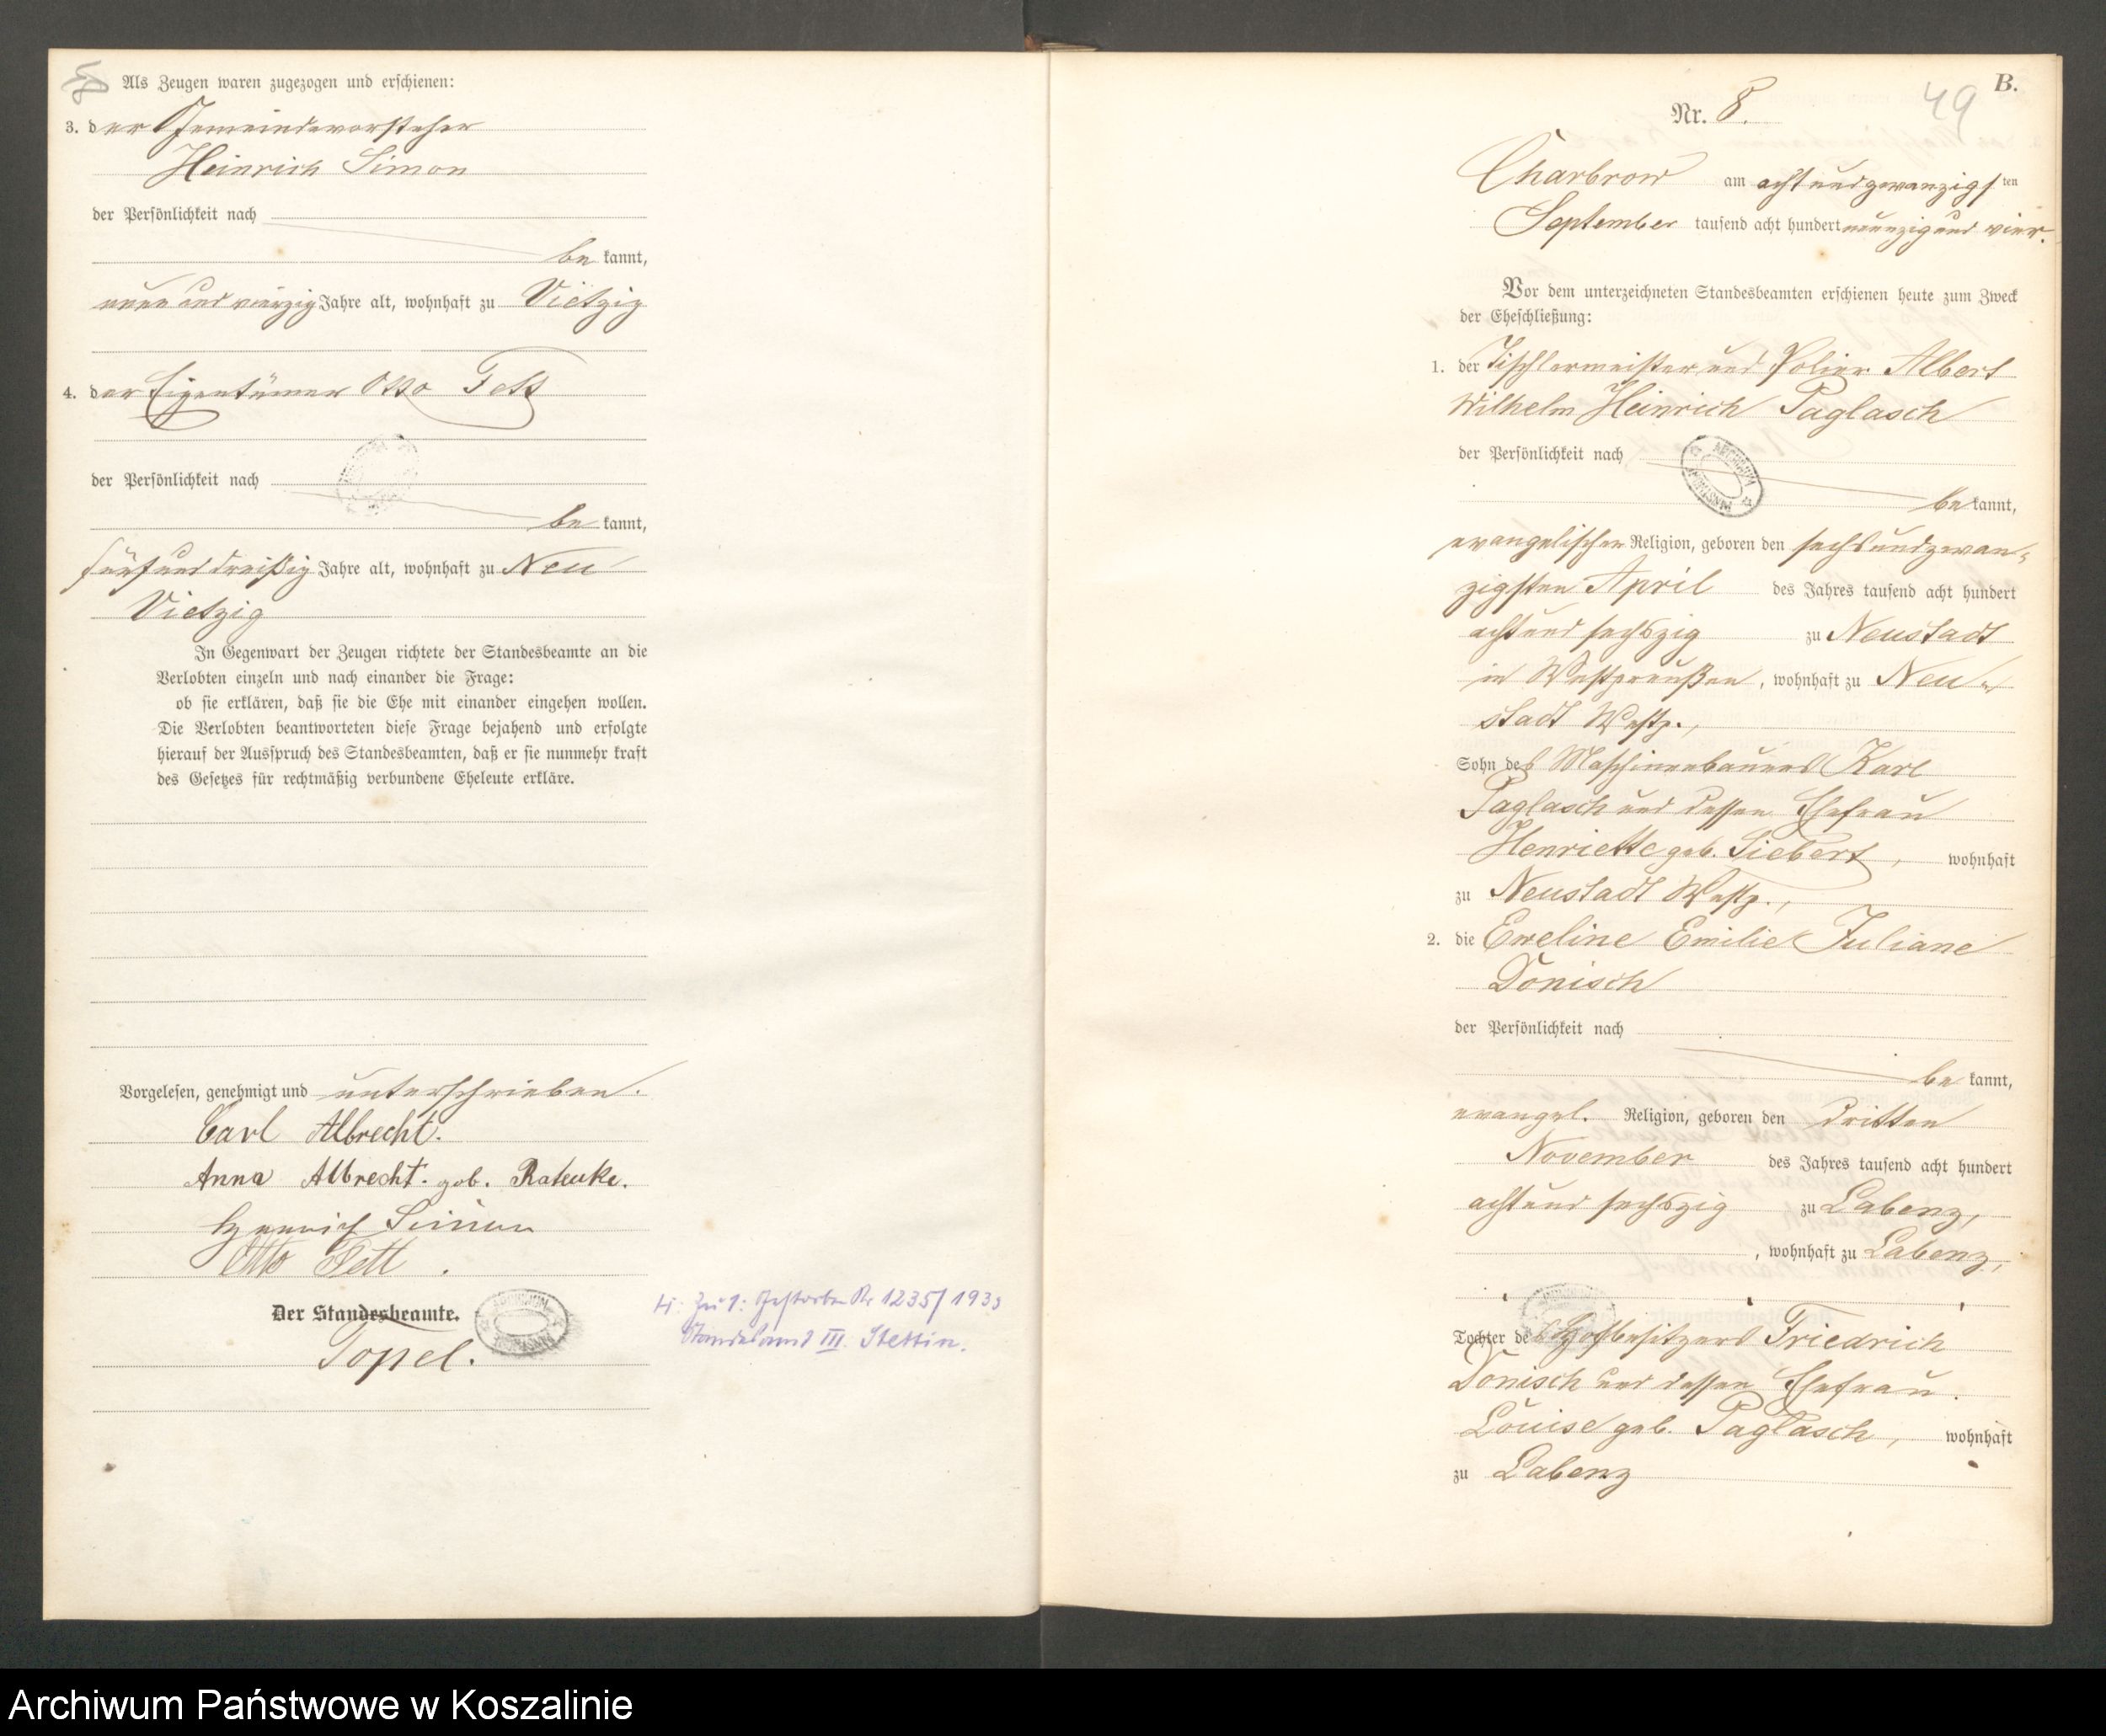 Als Zeugen waren zugezogen und erschienen:
3. der Gemeindevorsteher
Heinrich Simon
der Persönlichkeit nach
be kannt,
neun und vierzig Jahre alt, wohnhaft zu Vietzig
4. der Eigentümer Otto Fett
der Persönlichkeit nach
be kannt,
fünfunddreißig Jahre alt, wohnhaft zu Neu
Vietzig
In Gegenwart der Zeugen richtete der Standesbeamte an die
Verlobten einzeln und nach einander die Frage:
ob sie erklären, daß sie die Ehe mit einander eingehen wollen.
Die Verlobten beantworteten diese Frage bejahend und erfolgte
hierauf der Ausspruch des Standesbeamten, daß er sie nunmehr kraft
des Gesetzes für rechtmäßig verbundene Eheleute erkläre.
Vorgelesen, genehmigt und unterschrieben.
Carl Albrecht.
Anna Albrecht. geb. Ratenke.
Heinrich Simon
Otto Fett.
Der Standesbeamte.
Topel.
H: Zu 1: Gestorben Nr 1235/1933
Standesamt III. Stettin.
B.
49
Nr. 8.
Charbrow am achtundzwanzigsten
September tausend acht hundert neunzig und vier.
Vor dem unterzeichneten Standesbeamten erschienen heute zum Zweck
der Eheschließung:
1. der Tischlermeister und Polier Albert
Wilhelm Heinrich Paglasch
der Persönlichkeit nach
ARCHIWUM PAŃSTWOWE
be kannt,
evangelischer Religion, geboren den sechsundzwan-
zigsten April des Jahres tausend acht hundert
acht und sechszig zu Neustadt
in Westpreußen, wohnhaft zu Neu-
stadt Westp.,
Sohn des Maschinenbauers Karl
Paglasch und dessen Ehefrau
Henriette geb. Siebert, wohnhaft
zu Neustadt Westp.,
2. die Eweline Emilie Juliane
Donisch
der Persönlichkeit nach
be kannt,
evangel. Religion, geboren den dritten
November des Jahres tausend acht hundert
acht und sechszig zu Labenz,
, wohnhaft zu Labenz,
Tochter des Hofbesitzers Friedrich
Donisch und dessen Ehefrau
Louise geb. Paglasch, wohnhaft
zu Labenz
Archiwum Państwowe w Koszalinie